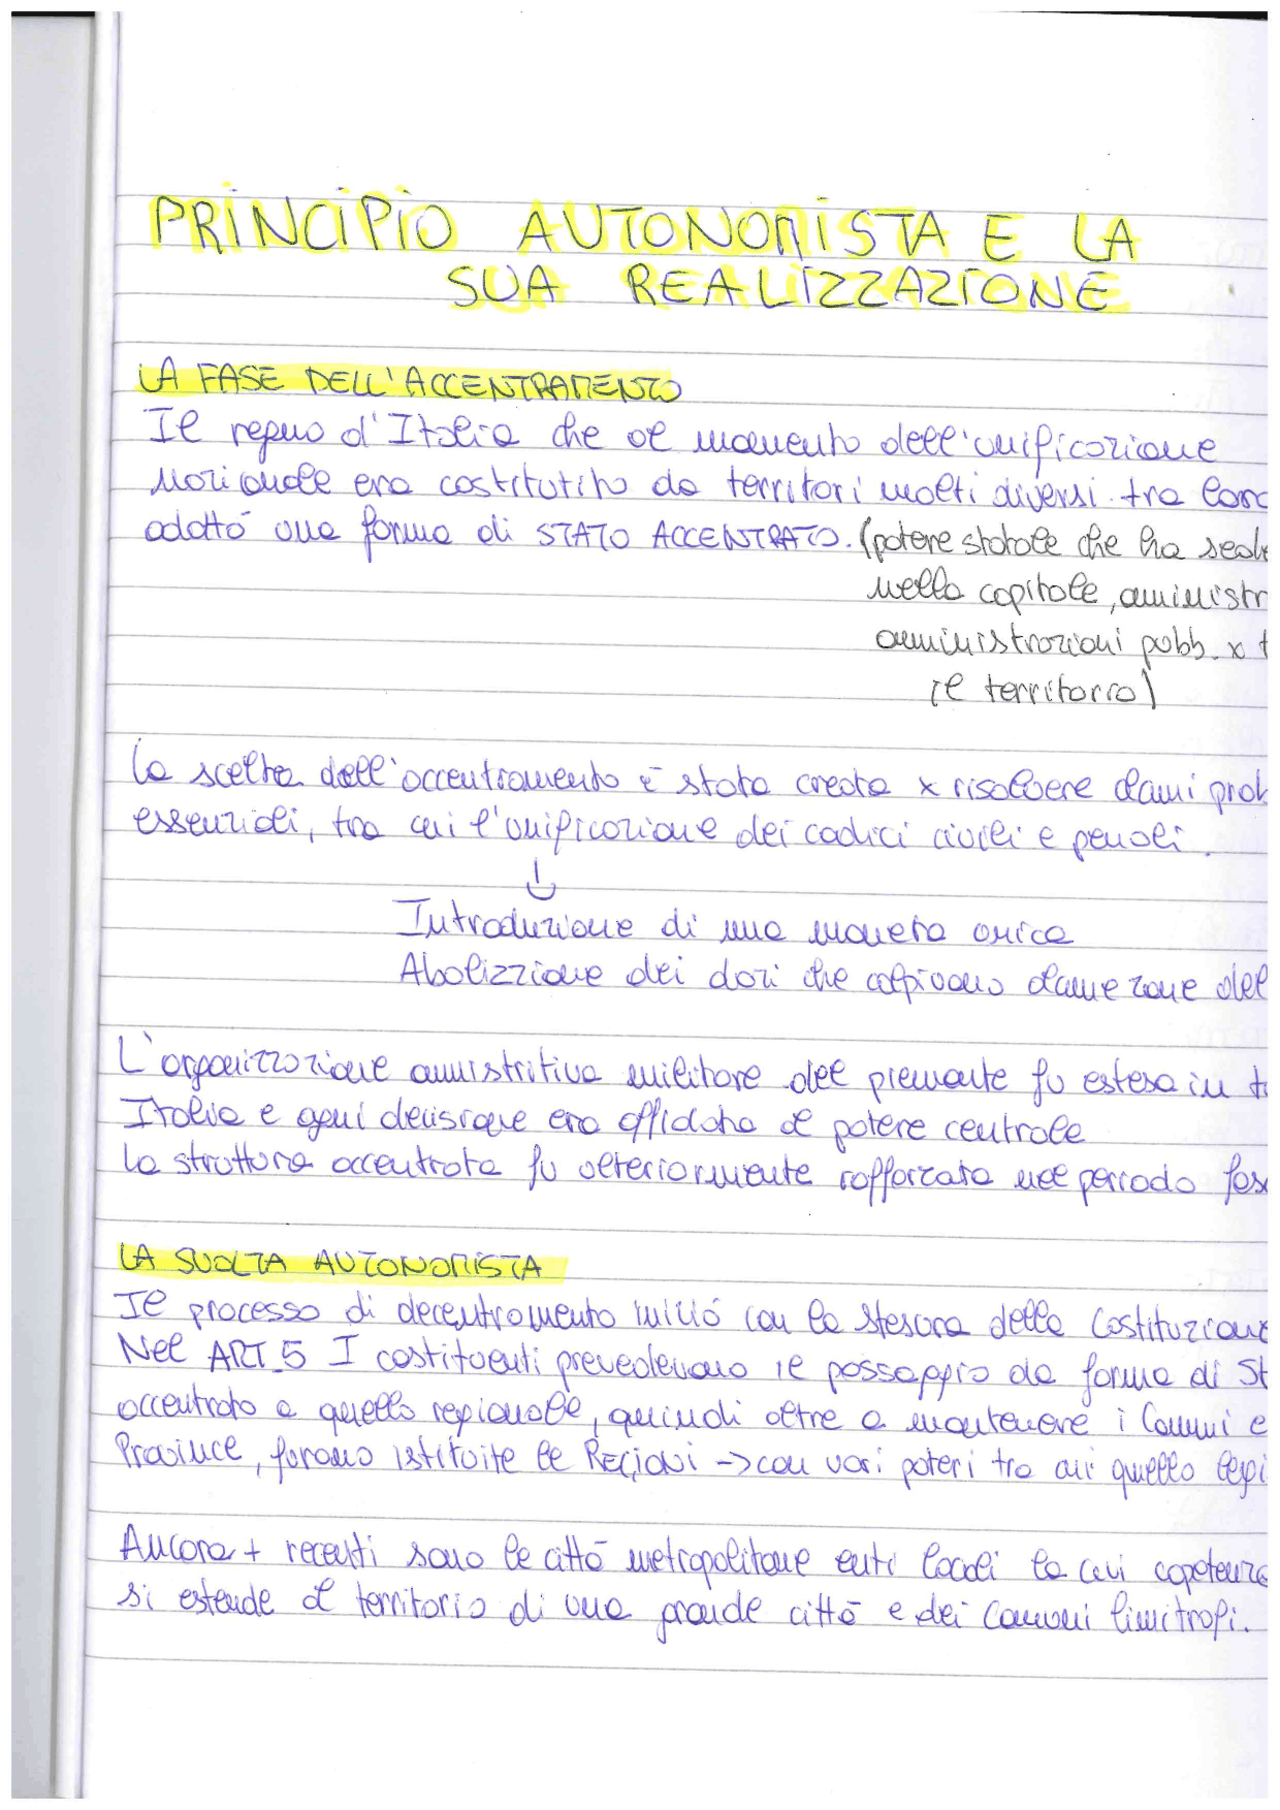 PRINCIPIO AUTONOMISTA E LA
SUA REALIZZAZIONE
LA FASE DELL'ACCENTRAMENTO
Il regno d'Italia che al momento dell'unificazione
nazionale era costitutito da territori molti diversi tra loro
adottó una forma di STATO ACCENTRATO. (potere statale che ha sede
nella capitale, amministr
amministrazioni pubb. x t
il territorio)
La scelta dell'accentramento é stata creata x risolvere alcuni prob
essenziali, tra cui l'unificazione dei codici civili e penali.
Introduzione di una moneta unica
Abolizzione dei dazi che colpivano alcune zone del
L'organizzazione ammistritiva militare del piemonte fu estesa in t
Italia e ogni decisione era affidata al potere centrale
la struttura accentrata fu ulteriormente rafforzata nel periodo fas
LA SVOLTA AUTONOMISTA
Il processo di decentramento inizió con la stesura della Costituzione
Nel ART.5 I costituenti prevedevano il passaggio da forma di St
accentrato a quello regionale, quindi oltre a mantenere i Comuni e
Province, furono istituite le REGIONI -> con vari poteri tra cui quello legi
Ancora + recenti sono le cittá metropolitane enti locali la cui copetenza
si estende al territorio di una grande cittá e dei Comuni limitrofi.